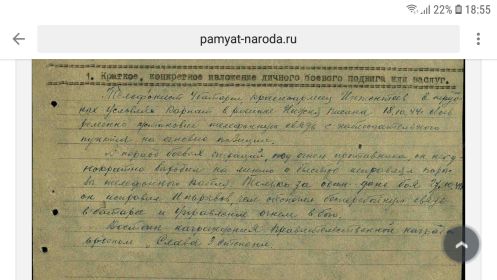 22% 18:55
pamyat-naroda.ru
1. Краткое, конкретное изложение личного боевого подвига или заслуг.
Телефонист батареи красноармеец в труд-
ных условиях в районе 18.10.44 свое
временно установил телефонную связь с наблюдательного
пункта на огневые позиции.
В период боевых операций под огнем противника он неод-
нократно выходил на линию и быстро исправлял поры-
вы телефонной линии. Только за один день боя
он исправил порывов, чем обеспечил бесперебойную связь
в батарее и управление огнем в бою.
Достоин награждения Правительственной награды
орденом "Слава 3 степени.